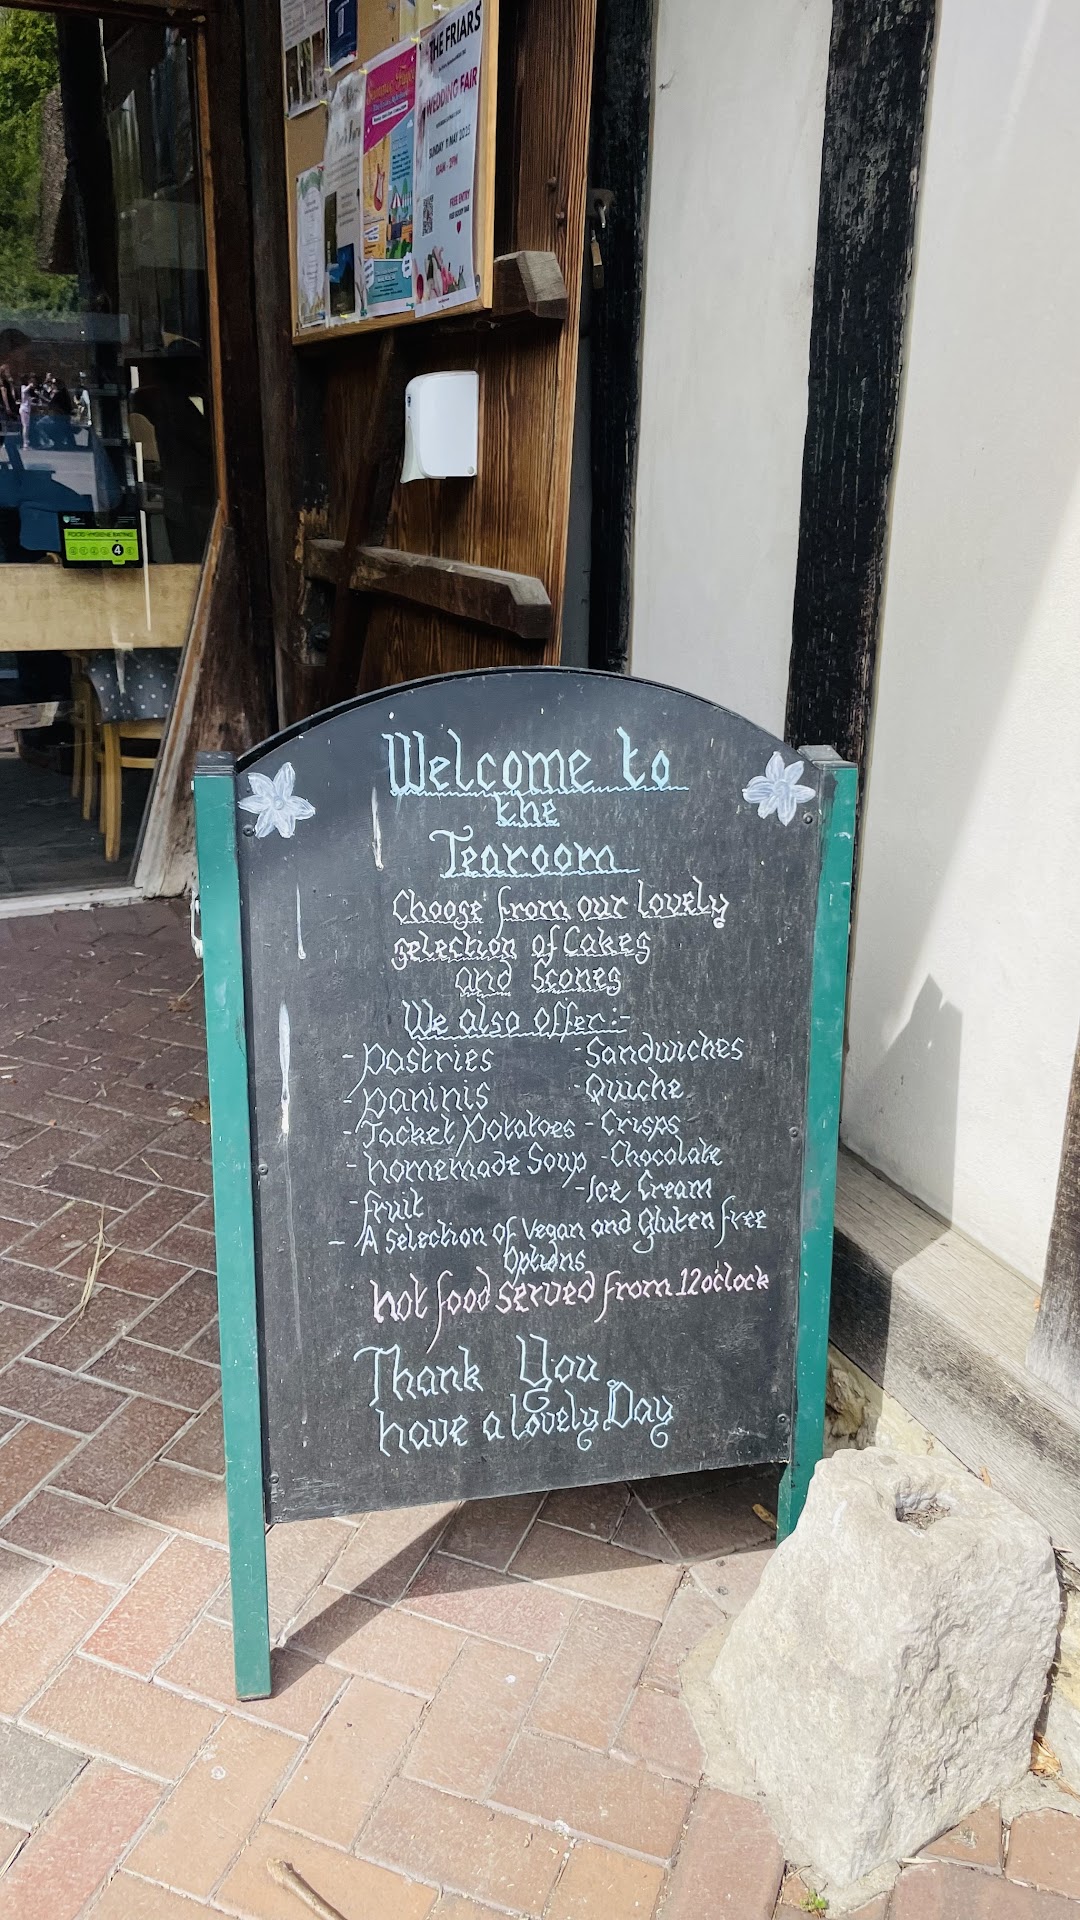 THE FRIARS
WEDDING FAIR
SUNDAY 11 MAY 2025
10AM - 2PM
FREE ENTRY
FOOD HYGIENE RATING
4
Welcome to
the
Tearoom
Choose from our Lovely
selection of Cakes
and Scones
We also offer:-
- pastries - Sandwiches
- paninis - Quiche
- Jacket Potatoes - Crisps
- homemade Soup - Chocolate
- fruit - Ice Cream
- A Selection of Vegan and Gluten free
Options
hot food served from 12o'clock
Thank You
have a lovely Day